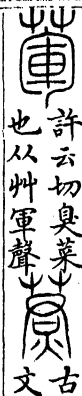 葷
許云切臭菜
也从艸軍聲
古
文